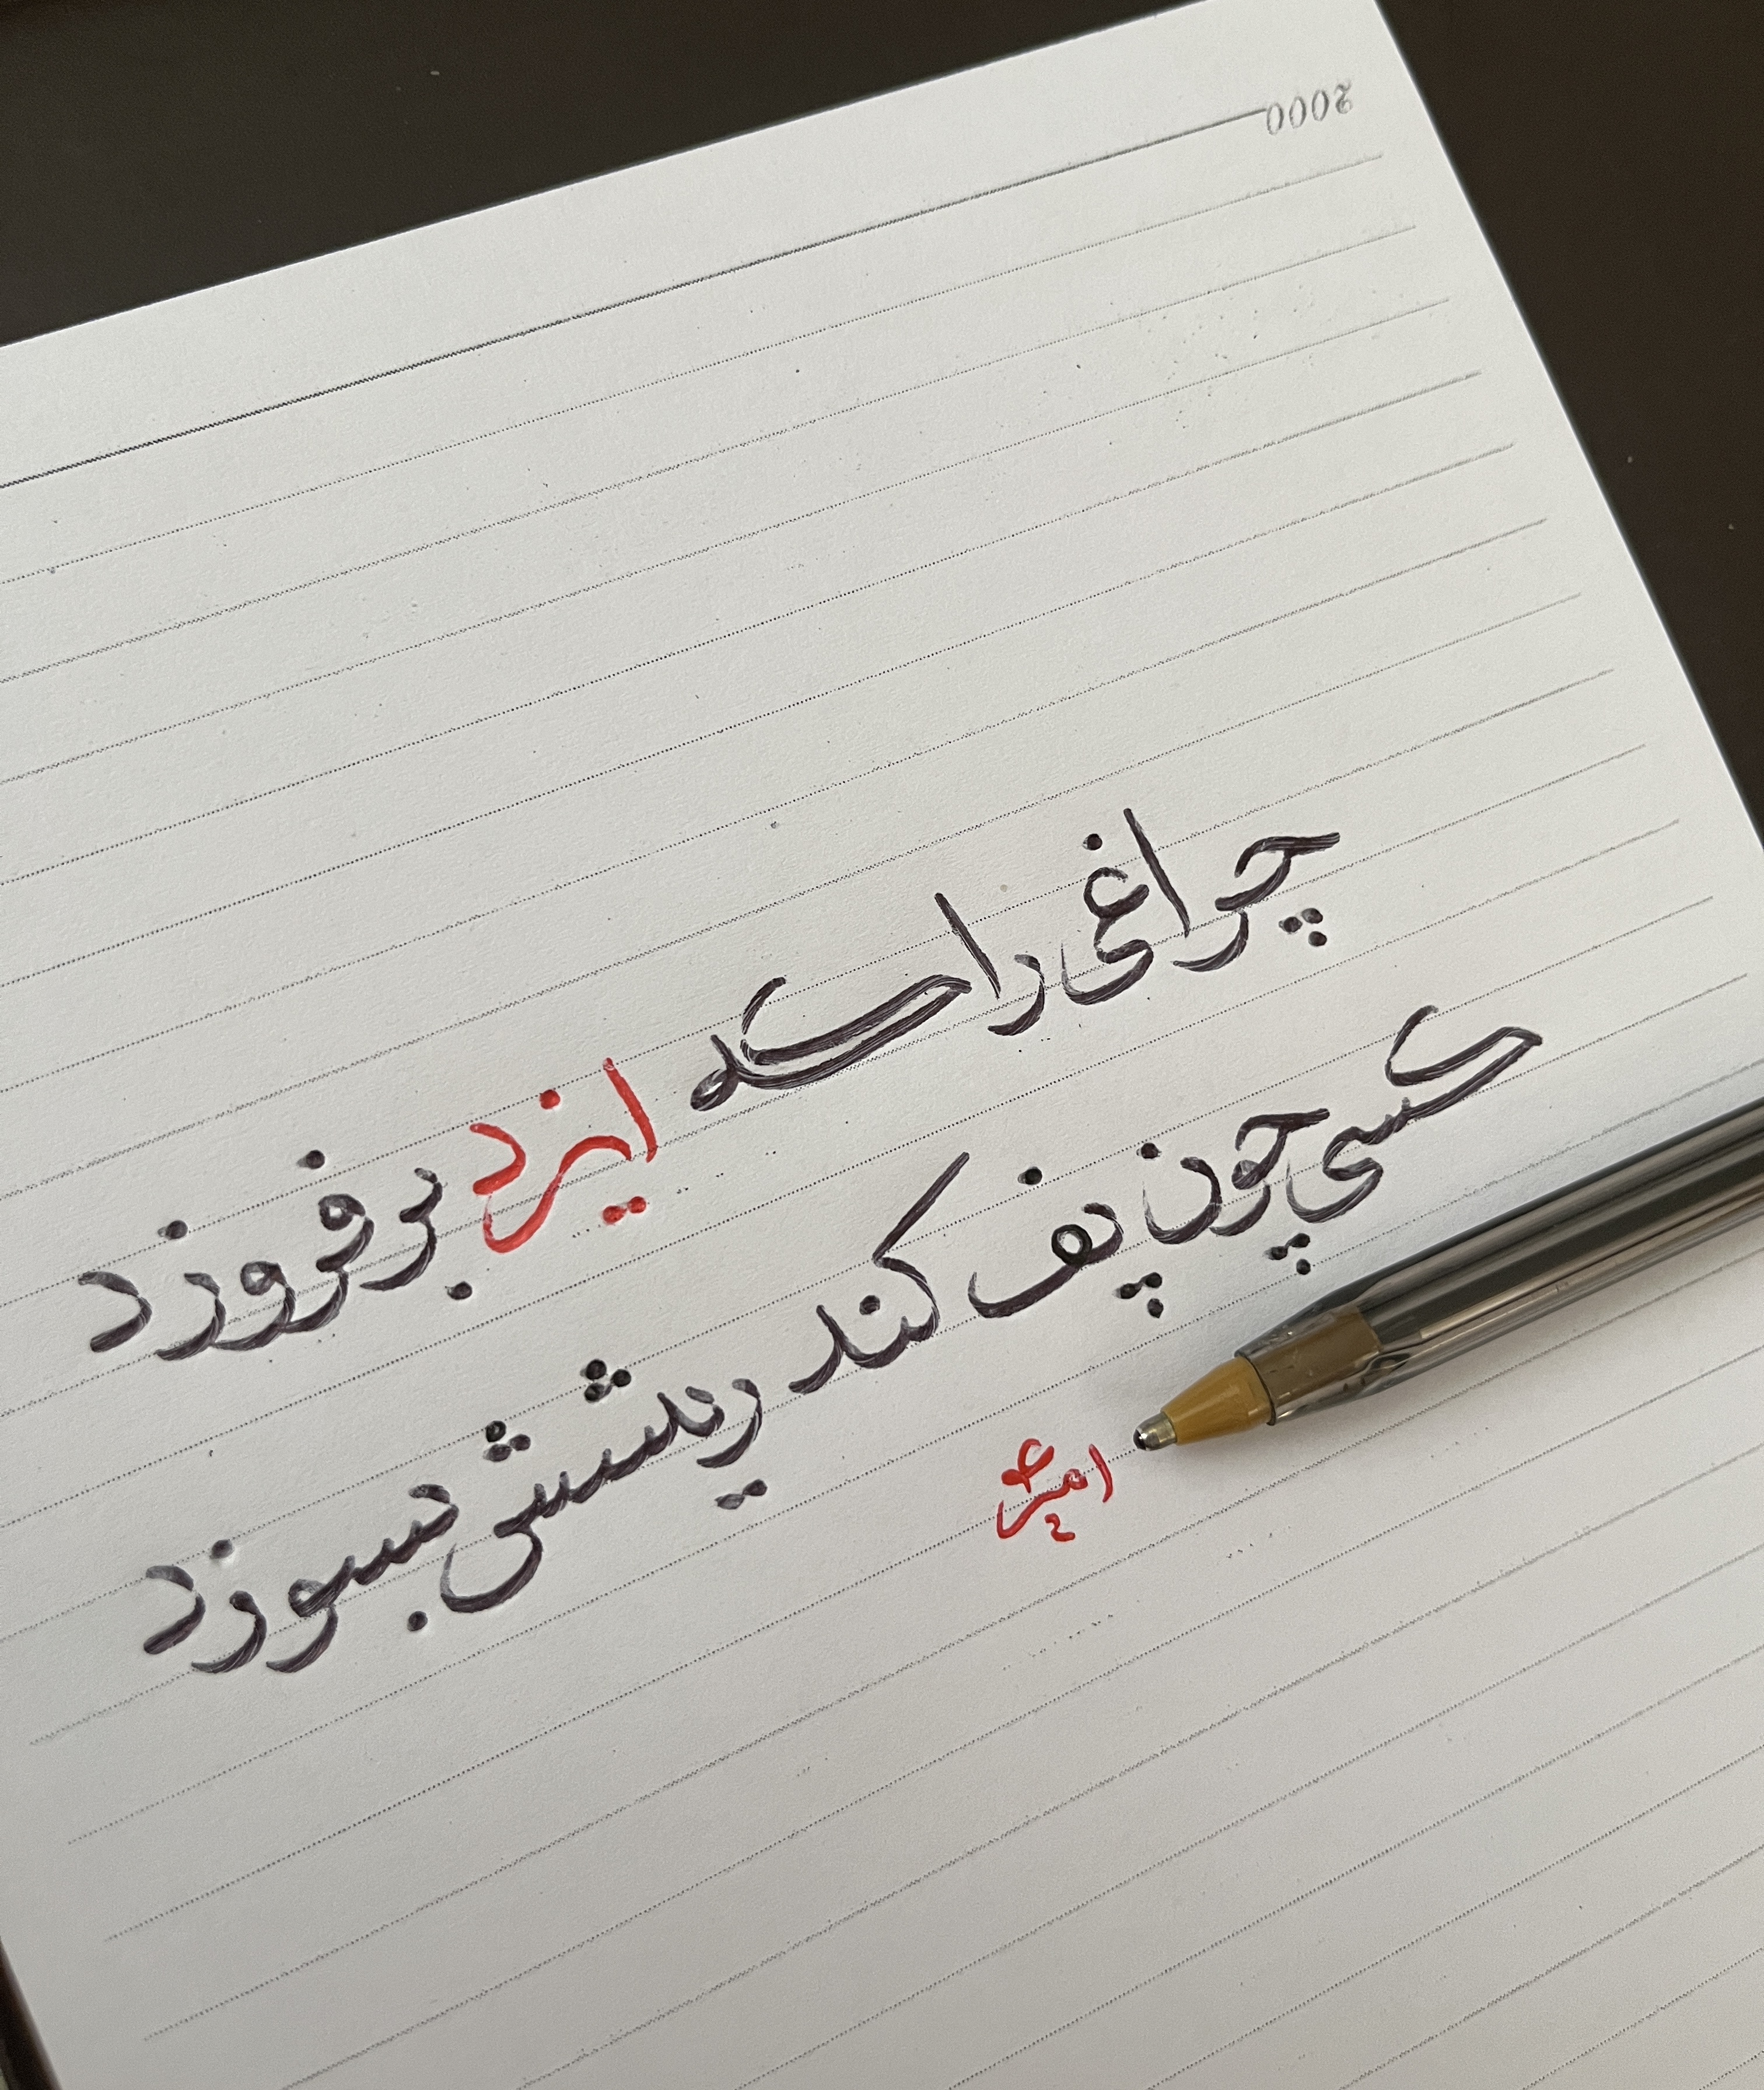 2000
چراغی را که ایزد بر فروزد
کسی چون پف کند ریشش بسوزد